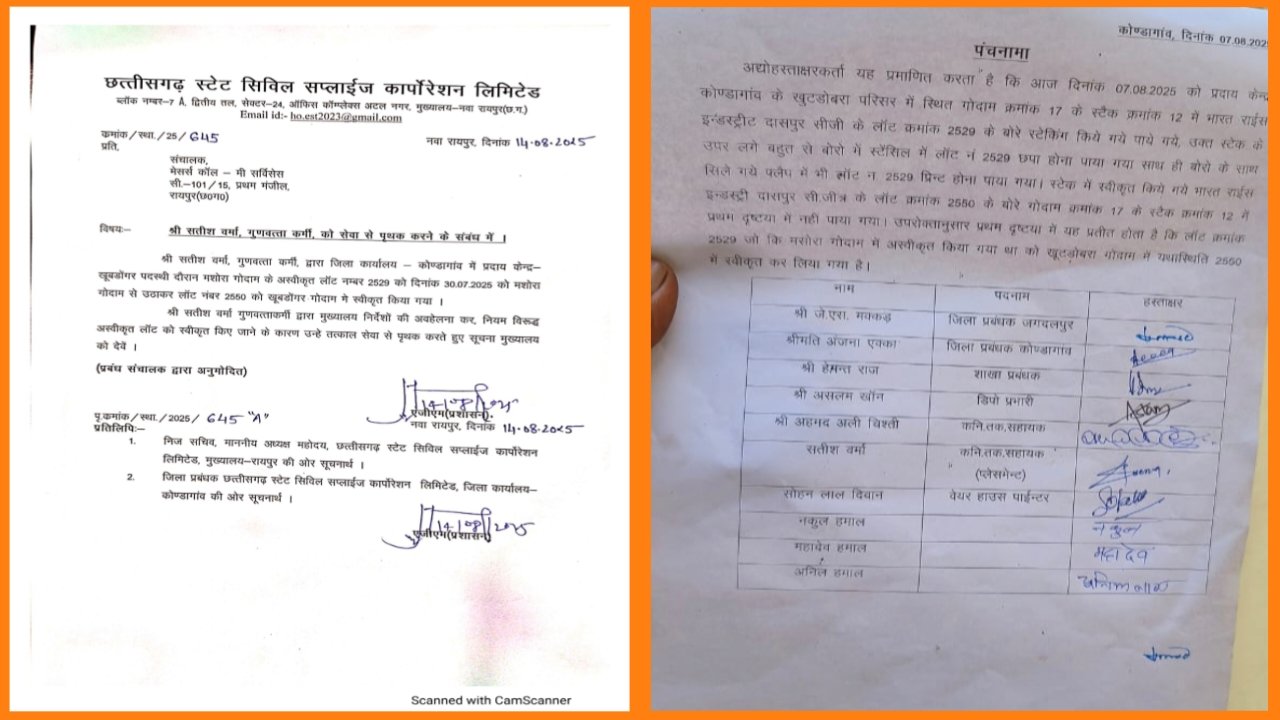 छत्तीसगढ़ स्टेट सिविल सप्लाईज कार्पोरेशन लिमिटेड
ब्लॉक नम्बर–7 A, द्वितीय तल, सेक्टर–24, ऑफिस कॉम्प्लेक्स अटल नगर, मुख्यालय–नवा रायपुर(छ.ग.)
Email id:- ho.est2023@gmail.com
क्रमांक/स्था./25/ 645 नवा रायपुर, दिनांक 14.08.2025
प्रति,
संचालक,
मेसर्स कॉल – मी सर्विसेस
सी.–101/15, प्रथम मंजील,
रायपुर(छ0ग0)
विषयः– श्री सतीश वर्मा, गुणवत्ता कर्मी, को सेवा से पृथक करने के संबंध में ।
श्री सतीश वर्मा, गुणवत्ता कर्मी, द्वारा जिला कार्यालय – कोण्डागांव में प्रदाय केन्द्र–
खूबडोंगर पदस्थी दौरान मशोरा गोदाम के अस्वीकृत लॉट नम्बर 2529 को दिनांक 30.07.2025 को मशोरा
गोदाम से उठाकर लॉट नंबर 2550 को खूबडोंगर गोदाम मे स्वीकृत किया गया ।
श्री सतीश वर्मा गुणवत्ताकर्मी द्वारा मुख्यालय निर्देशों की अवहेलना कर, नियम विरूद्ध
अस्वीकृत लॉट को स्वीकृत किए जाने के कारण उन्हे तत्काल सेवा से पृथक करते हुए सूचना मुख्यालय
को देवें ।
(प्रबंध संचालक द्वारा अनुमोदित)
14/08/2025
एजीएम(प्रशासन).
पृ.कमांक/स्था./2025/ 645 "A" नवा रायपुर, दिनांक 14.08.2025
प्रतिलिपिः–
1. निज सचिव, माननीय अध्यक्ष महोदय, छत्तीसगढ़ स्टेट सिविल सप्लाईज कार्पोरेशन
लिमिटेड, मुख्यालय–रायपुर की ओर सूचनार्थ ।
2. जिला प्रबंधक छत्तीसगढ़ स्टेट सिविल सप्लाईज कार्पोरेशन लिमिटेड, जिला कार्यालय–
कोण्डागांव की ओर सूचनार्थ ।
14/08/2025
एजीएम(प्रशासन)
Scanned with CamScanner
कोण्डागांव, दिनांक 07.08.2025
पंचनामा
अद्योहस्ताक्षरकर्ता यह प्रमाणित करता है कि आज दिनांक 07.08.2025 को प्रदाय केन्द्र
कोण्डागांव के खुटडोबरा परिसर में स्थित गोदाम क्रमांक 17 के स्टैक क्रमांक 12 में भारत राईस
इन्डस्ट्रीट दासपुर सीजी के लॉट क्रमांक 2529 के बोरे स्टेकिंग किये गये पाये गये, उक्त स्टेक के
उपर लगे बहुत से बोरो में स्टेंसिल में लॉट नं 2529 छपा होना पाया गया साथ ही बोरो के साथ
सिले गये फ्लैप में भी लॉट न 2529 प्रिन्ट होना पाया गया। स्टेक में स्वीकृत किये गये भारत राईस
इन्डस्ट्री दारापुर सी.जीत्र के लॉट क्रमांक 2550 के बोरे गोदाम क्रमांक 17 के स्टैक क्रमांक 12 में
प्रथम दृष्टया में नहीं पाया गया। उपरोक्तानुसार प्रथम दृष्टया में यह प्रतीत होता है कि लॉट क्रमांक
2529 जो कि मसोरा गोदाम में अस्वीकृत किया गया था को खुटडोबरा गोदाम में यथास्थिति 2550
में स्वीकृत कर लिया गया है।
नाम पदनाम हस्ताक्षर
श्री जे.एरा. मक्कड़ जिला प्रबंधक जगदलपुर
श्रीमति अंजना एक्का जिला प्रबंधक कोण्डागांव
श्री हेमन्त राज शाखा प्रबंधक
श्री असलम खॉन डिपो प्रभारी
श्री अहमद अली चिश्ती कनि.तक.सहायक
सतीश वर्मा कनि.तक.सहायक
(प्लेसमेन्ट)
सोहन लाल दिवान वेयर हाउस पाईन्टर
नकुल हमाल नकुल
महादेव हमाल महादेव
अनिल हमाल